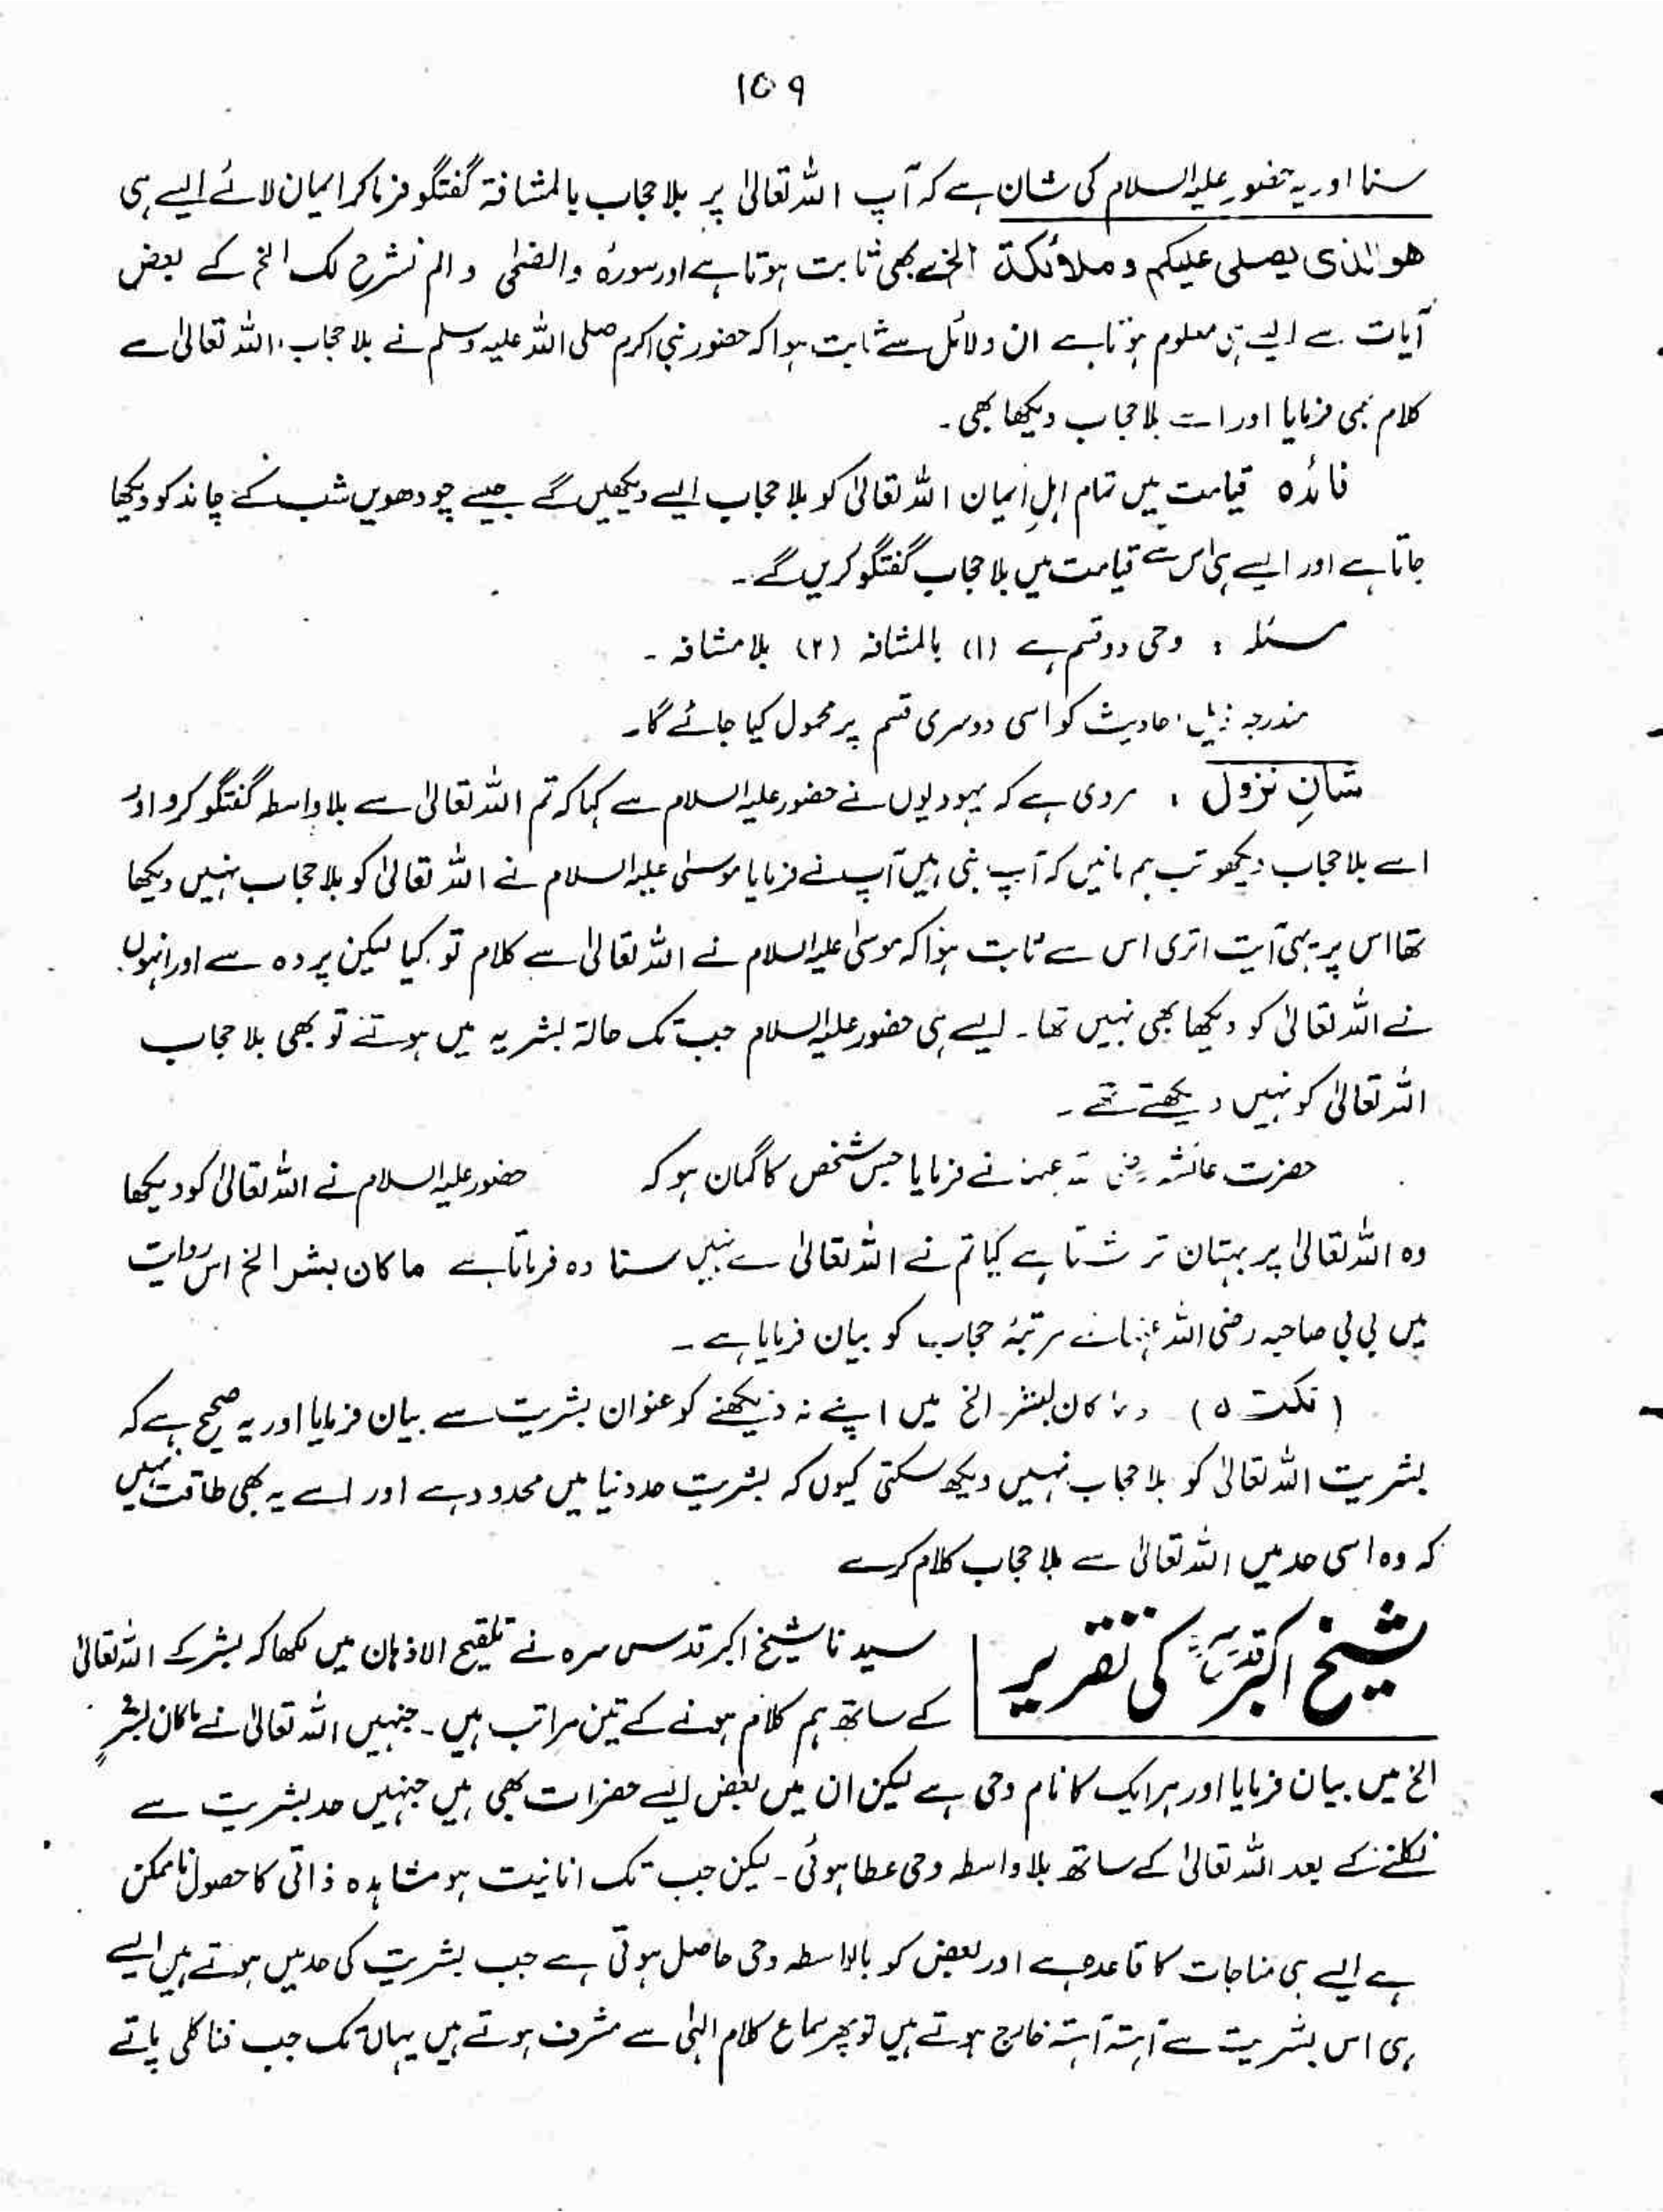 ۱۵۹
سنا اور یہ حضور علیہ السلام کی شان ہے کہ آپ اللہ تعالیٰ پر بلا حجاب بالمشافۃ گفتگو فرما کر ایمان لائے ایسے ہی
ھو الذی یصلی علیکم و ملائکۃ الخ سے بھی ثابت ہوتا ہے اور سورۂ والضحٰی و الم نشرح لک الخ کے بعض
آیات سے ایسے ہی معلوم ہوتا ہے ان دلائل سے ثابت ہوا کہ حضور نبی اکرم صلی اللہ علیہ وسلم نے بلا حجاب اللہ تعالیٰ سے
کلام بھی فرمایا اور اسے بلا حجاب دیکھا بھی۔
فائدہ قیامت میں تمام اہلِ ایمان اللہ تعالیٰ کو بلا حجاب ایسے دیکھیں گے جیسے چودھویں شب کے چاند کو دیکھا
جاتا ہے اور ایسے ہی اس سے قیامت میں بلا حجاب گفتگو کریں گے۔
مسئلہ : وحی دو قسم ہے (۱) بالمشافہ (۲) بلا مشافہ ۔
مندرجہ ذیل احادیث کو اسی دوسری قسم پر محمول کیا جائے گا۔
شانِ نزول : مروی ہے کہ یہودیوں نے حضور علیہ السلام سے کہا کہ تم اللہ تعالیٰ سے بلا واسطہ گفتگو کرو اور
اسے بلا حجاب دیکھو تب ہم مانیں کہ آپ نبی ہیں آپ نے فرمایا موسیٰ علیہ السلام نے اللہ تعالیٰ کو بلا حجاب نہیں دیکھا
تھا اس پر یہی آیت اتری اس سے ثابت ہوا کہ موسیٰ علیہ السلام نے اللہ تعالیٰ سے کلام تو کیا لیکن پردہ سے اور انہوں
نے اللہ تعالیٰ کو دیکھا بھی نہیں تھا۔ ایسے ہی حضور علیہ السلام جب تک حالۃ بشریہ میں ہوتے تو بھی بلا حجاب
اللہ تعالیٰ کو نہیں دیکھتے تھے ۔
حضرت عائشہ رضی اللہ عنہا نے فرمایا جس شخص کا گمان ہو کہ حضور علیہ السلام نے اللہ تعالیٰ کو دیکھا
وہ اللہ تعالیٰ پر بہتان تراشتا ہے کیا تم نے اللہ تعالیٰ سے نہیں سنا وہ فرماتا ہے ما کان بشر الخ اس روایت
میں بی بی صاحبہ رضی اللہ عنہا نے مرتبۂ حجاب کو بیان فرمایا ہے ۔
(نکتہ ۵) وما کان لبشر الخ میں اپنے نہ دیکھنے کو عنوان بشریت سے بیان فرمایا اور یہ صحیح ہے کہ
بشریت اللہ تعالیٰ کو بلا حجاب نہیں دیکھ سکتی کیوں کہ بشریت حد دنیا میں محدود ہے اور اسے یہ بھی طاقت نہیں
کہ وہ اسی حد میں اللہ تعالیٰ سے بلا حجاب کلام کرے
شیخ اکبر قدس سرہ کی تقریر
سیدنا شیخ اکبر قدس سرہ نے تلقیح الاذہان میں لکھا کہ بشر کے اللہ تعالیٰ
کے ساتھ ہم کلام ہونے کے تین مراتب ہیں ۔ جنہیں اللہ تعالیٰ نے ما کان لبشرٍ
الخ میں بیان فرمایا اور ہر ایک کا نام وحی ہے لیکن ان میں بعض ایسے حضرات بھی ہیں جنہیں حد بشریت سے
نکلنے کے بعد اللہ تعالیٰ کے ساتھ بلا واسطہ وحی عطا ہوئی ۔ لیکن جب تک انانیت ہو مشاہدہ ذاتی کا حصول ناممکن
ہے ایسے ہی مناجات کا قاعدہ ہے اور بعض کو بالواسطہ وحی حاصل ہوتی ہے جب بشریت کی حد میں ہوتے ہیں ایسے
ہی اس بشریت سے آہستہ آہستہ خارج ہوتے ہیں تو پھر سماع کلام الٰہی سے مشرف ہوتے ہیں یہاں تک جب فنا کلی پاتے